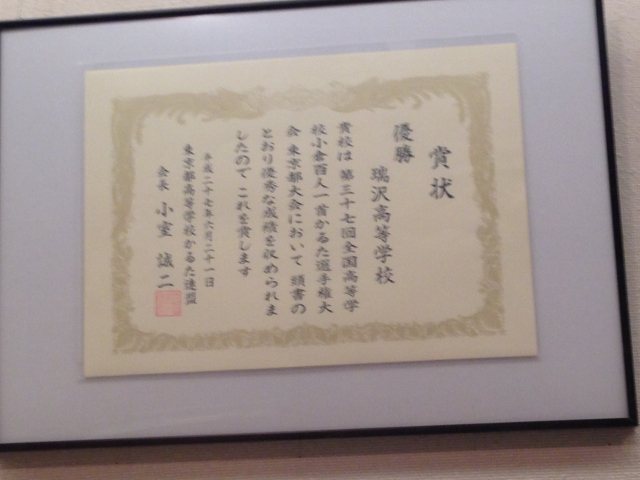 賞状
優勝
瑞沢高等学校
貴校は 第三十七回全国高等学
校小倉百人一首かるた選手権大
会 東京都大会において 頭書の
とおり優秀な成績を収められま
したので これを賞します
平成二十七年六月二十一日
東京都高等学校かるた連盟
会長 小室 誠二